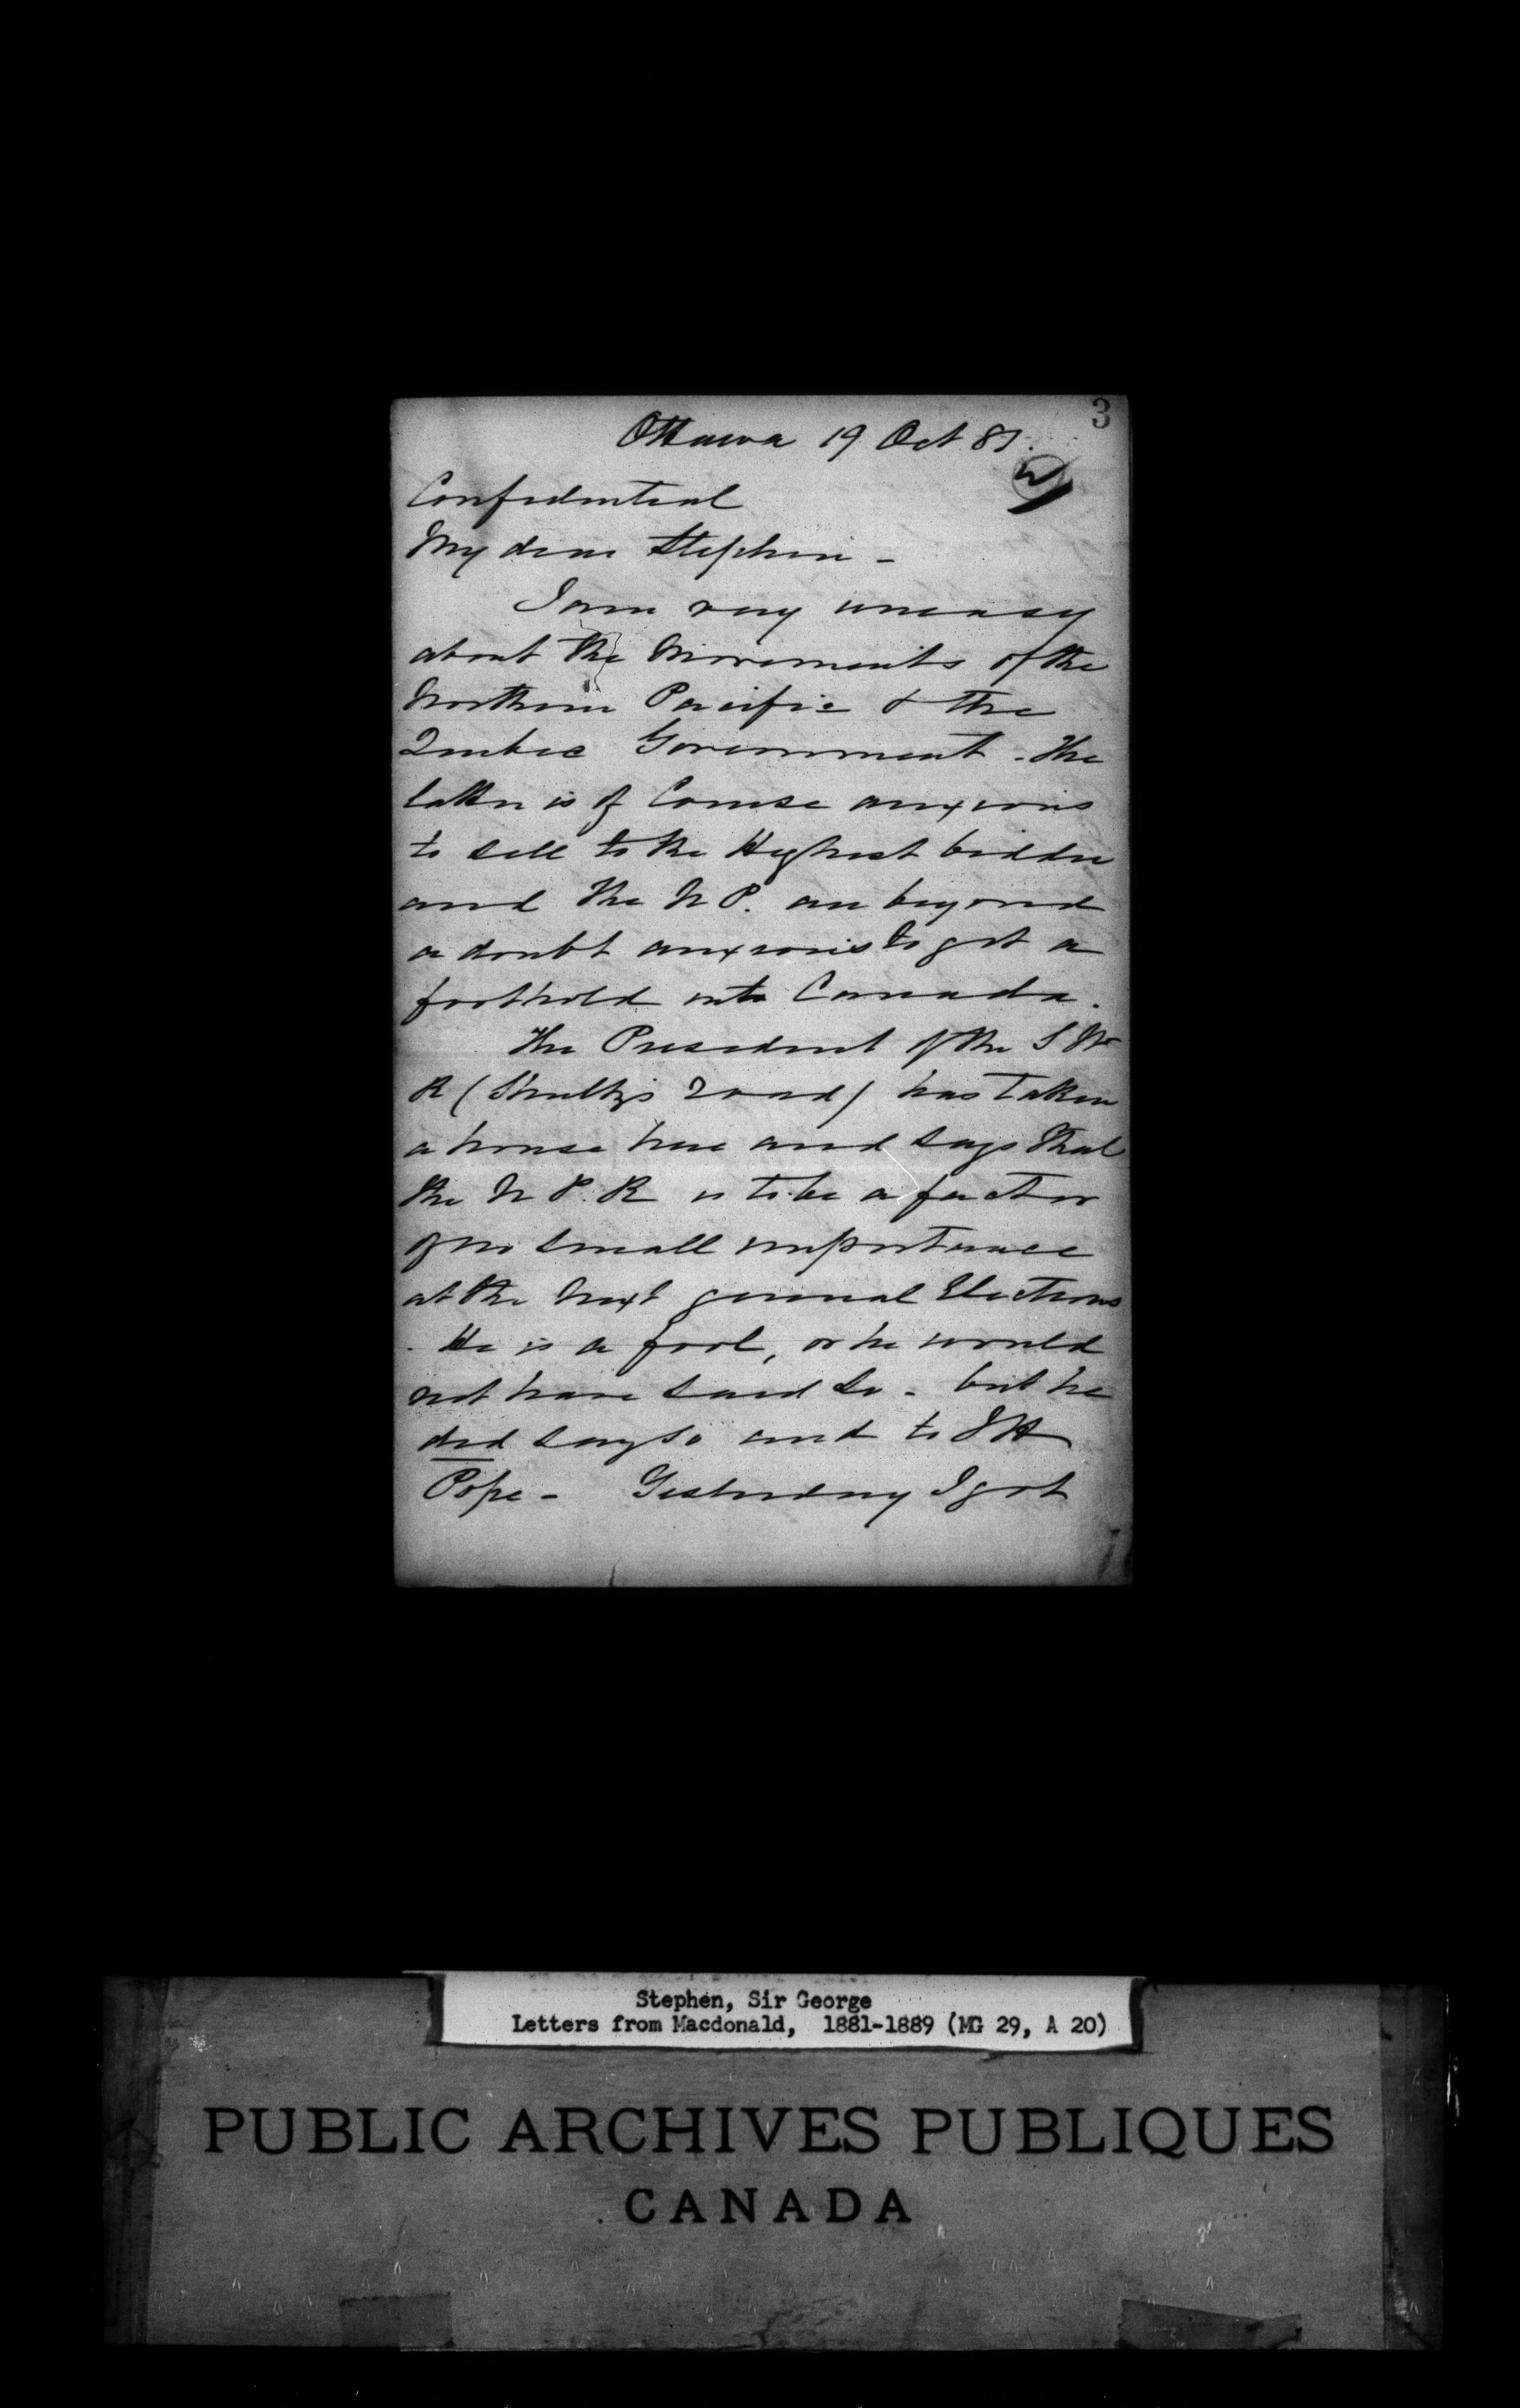 3
Ottawa 19 Oct 81.
Confidential
My dear Stephen -
I am very uneasy
about the movements of the
Northern Pacific & the
Quebec Government - The
latter is of Course anxious
to sell to the Highest bidder
and the N P. are beyond
a doubt anxious to get a
foothold into Canada.
The President of the S W
R (Shultz's road) has taken
a house here and says that
the N P. R is to be a factor
of no small importance
at the next general Elections
. He is a fool, or he would
not have said so - but he
did say so and to J H
Pope - Yesterday I got
Stephen, Sir George
Letters from Macdonald, 1881-1889 (MG 29, A 20)
PUBLIC ARCHIVES PUBLIQUES
CANADA